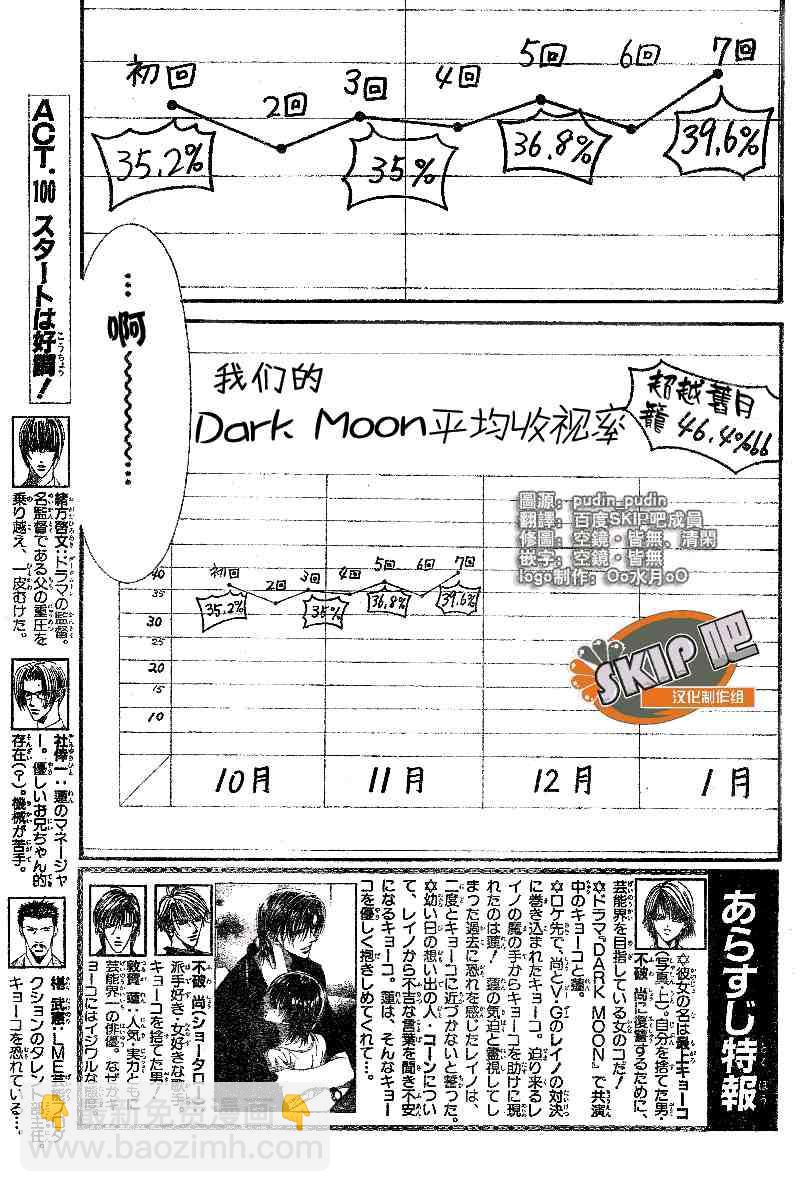 初回
2回
3回
4回
5回
6回
7回
35.2%
35%
36.8%
39.6%
ACT.100 スタートは好調！
…啊~~~~~~~…
我们的
Dark Moon平均收视率
超越舊月
籠 46.4%
圖源：pudin_pudin
翻譯：百度SKIP吧成員
修圖：空鏡·皆無、清閑
嵌字：空鏡·皆無
logo制作：Oo水月oO
SKIP吧
汉化制作组
初回
2回
3回
4回
5回
6回
7回
35.2%
35%
36.8%
39.6%
40
35
30
25
20
15
10
10月
11月
12月
1月
緒方啓文：ドラマの監督。
名監督である父の重圧を
乗り越え、一皮むけた。
社倖一：蓮のマネージャ
ー。優しいお兄ちゃん的
存在（？）。機械が苦手。
椹 武憲：LME芸能
クションのタレント部主任。
キョーコを恐れている…。
あらすじ特報
✡彼女の名は最上キョーコ
（写真上）。自分を捨てた男・
不破 尚に復讐するために、
芸能界を目指している女のコだ！
✡ドラマ『DARK MOON』で共演
中のキョーコと蓮。
✡ロケ先で、尚とV・Gのレイノの対決
に巻き込まれたキョーコ。迫り来るレ
イノの魔の手からキョーコを助けに現
れたのは蓮！ 蓮の気迫と霊視してし
まった過去に恐れを感じたレイノは、
二度とキョーコに近づかないと誓った。
✡幼い日の想い出の人・コーンについ
て、レイノから不吉な言葉を聞き不安
になるキョーコ。蓮は、そんなキョー
コを優しく抱きしめてくれて…。
不破 尚（ショータロー）
派手好き・女好きな歌手。
キョーコを捨てた男！
敦賀 蓮：人気・実力ともに
芸能界一の俳優。なぜかキ
ョーコにはイジワルな態度。
最新免费漫画
www.baozimh.com